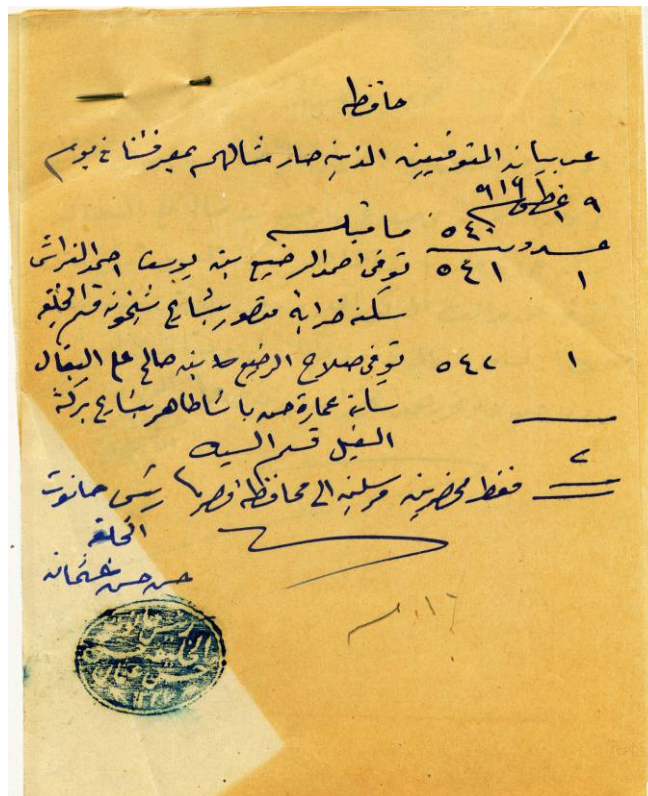 حافظه
عن بيان المتوفيين الذين صار مشالهم بمعرفتنا في يوم
٩ اغسطس ٩١٦
عدد ٥٤٠ ما قبله
١ ٥٤١ توفى احمد الرضيع بن يوسف احمد الفراش
سكنه خرابة منصور بشارع شيخونه قسم الخليفه
١ ٥٤٢ توفى صلاح الرضيع بن صالح على البقال
ساكن عمارة حسن باشا طاهر بشارع بركة
الفيل قسم السيده
٢ فقط محضرين مرسلين الى محافظة مصر رئيس حانوت
الخليفه
حسن حسن عثمان
١٦